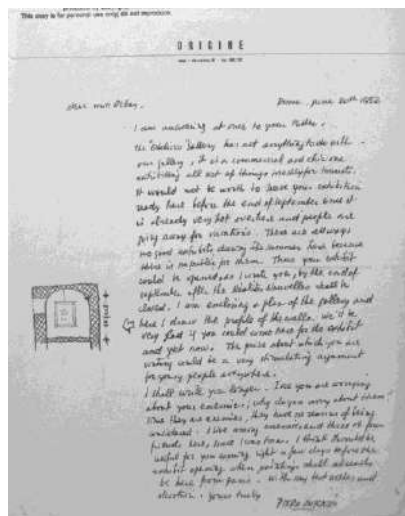 This copy is for personal use only; do not reproduce.
ORIGINE
Rome, June 20th 1952
Dear Miss Rebay,
I am answering at once to your letter.
The "Obelisco" Gallery has not anything to do with
our gallery, it is a commercial and chic one
exhibiting all sort of things mostly for tourists.
It would not be worth to have your exhibition
ready here before the end of September since it
is already very hot over here and people are
going away for vacations. There are always
no good exhibits during the summer here because
there is no public for them. Thus your exhibit
could be opened, as I wrote you, by the end of
september after the Biennale shall be
closed. I am enclosing a plan of the gallery and
here I draw the profile of the walls. We'll be
very glad if you could come here for the exhibit
and yet now. The prize about which you are
writing could be a very stimulating argument
for young people everywhere.
I shall write you longer. I see you are worrying
about your enemies; why do you worry about them?
Since they are enemies, they have no chance of being
considered. I live among enemies and three or four
friends here, since I was born. I think it would be
useful for you coming right a few days before the
exhibit opening when paintings shall already
be here from Paris. With my best wishes and
devotion, yours truly